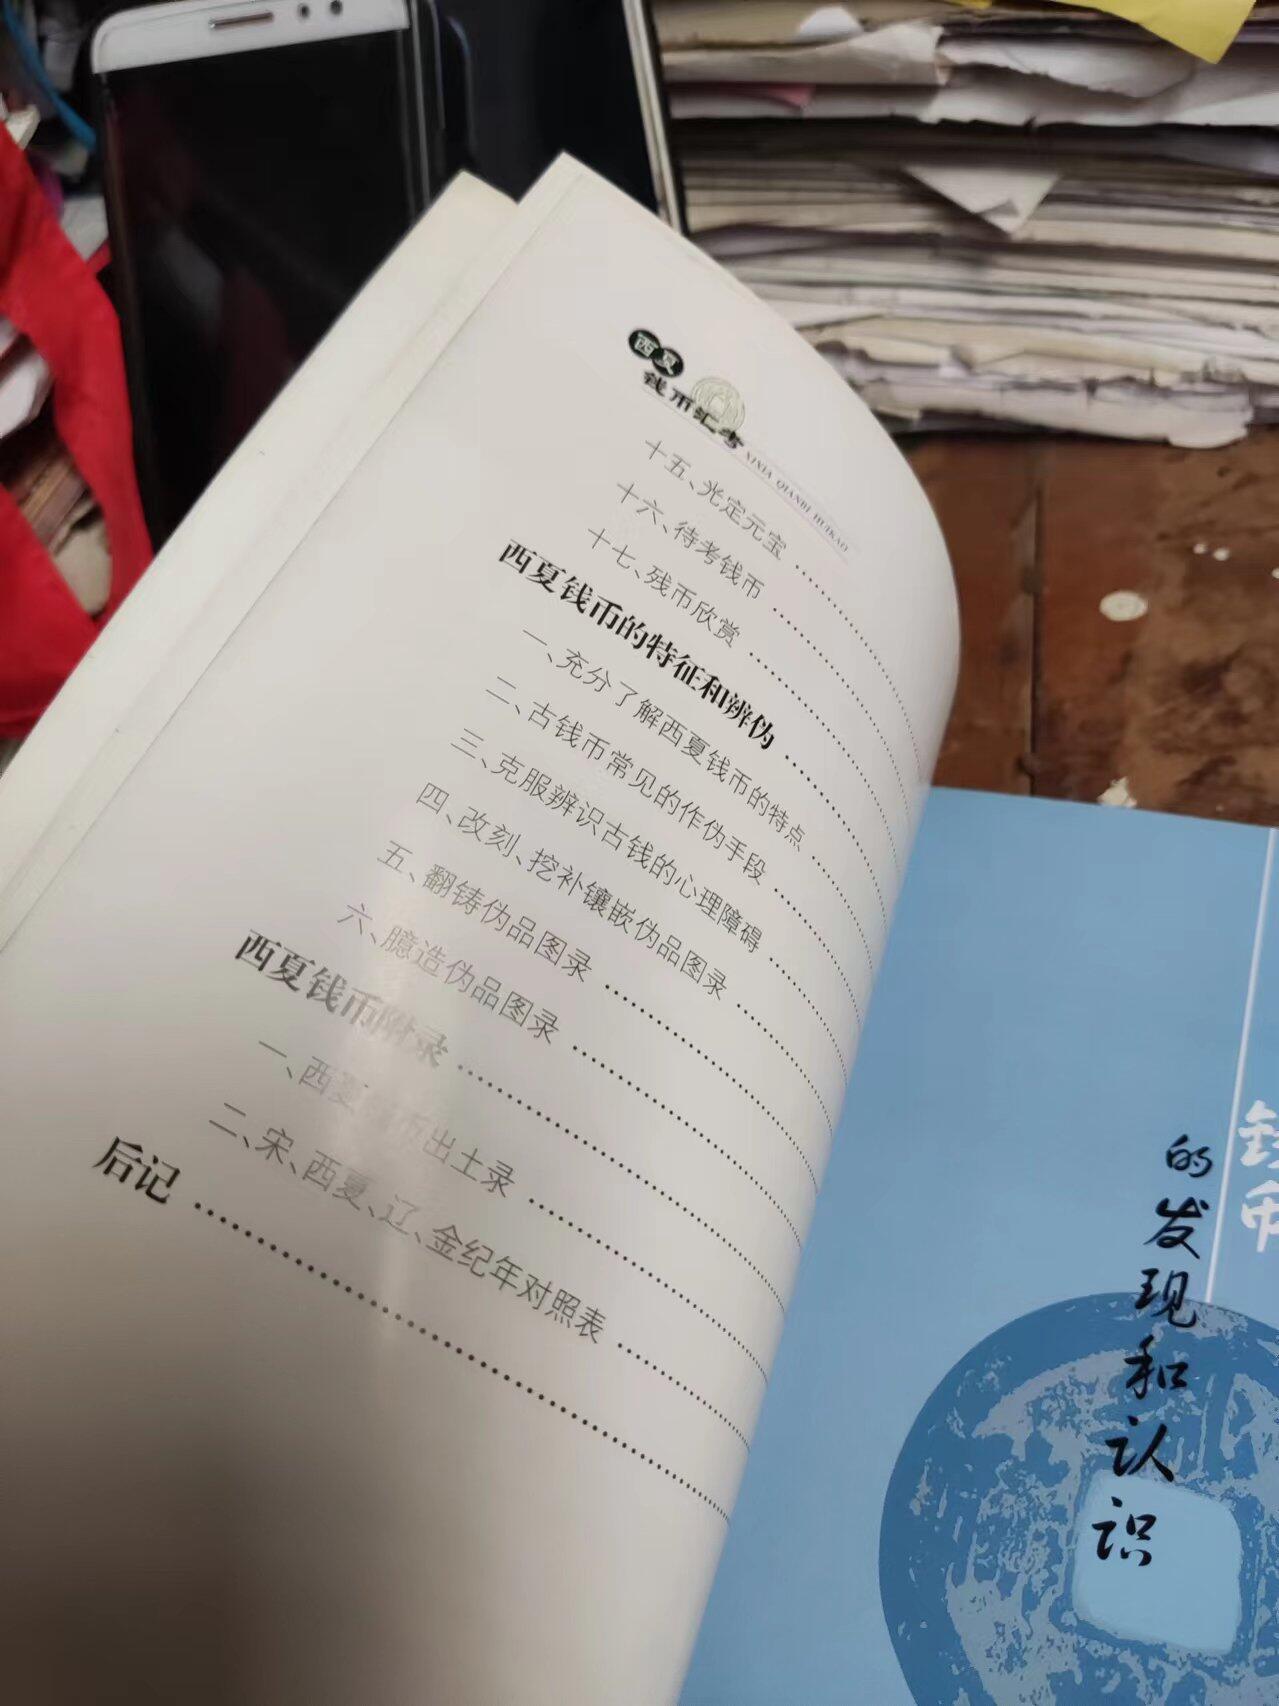 西夏
钱币汇考
XIXIA QIANBI HUIKAO
十五、光定元宝
十六、待考钱币
十七、残币欣赏
西夏钱币的特征和辨伪
一、充分了解西夏钱币的特点
二、古钱币常见的作伪手段
三、克服辨识古钱的心理障碍
四、改刻、挖补镶嵌伪品图录
五、翻铸伪品图录
六、臆造伪品图录
西夏钱币附录
一、西夏钱币出土录
二、宋、西夏、辽、金纪年对照表
后记
钱币
的发现和认识